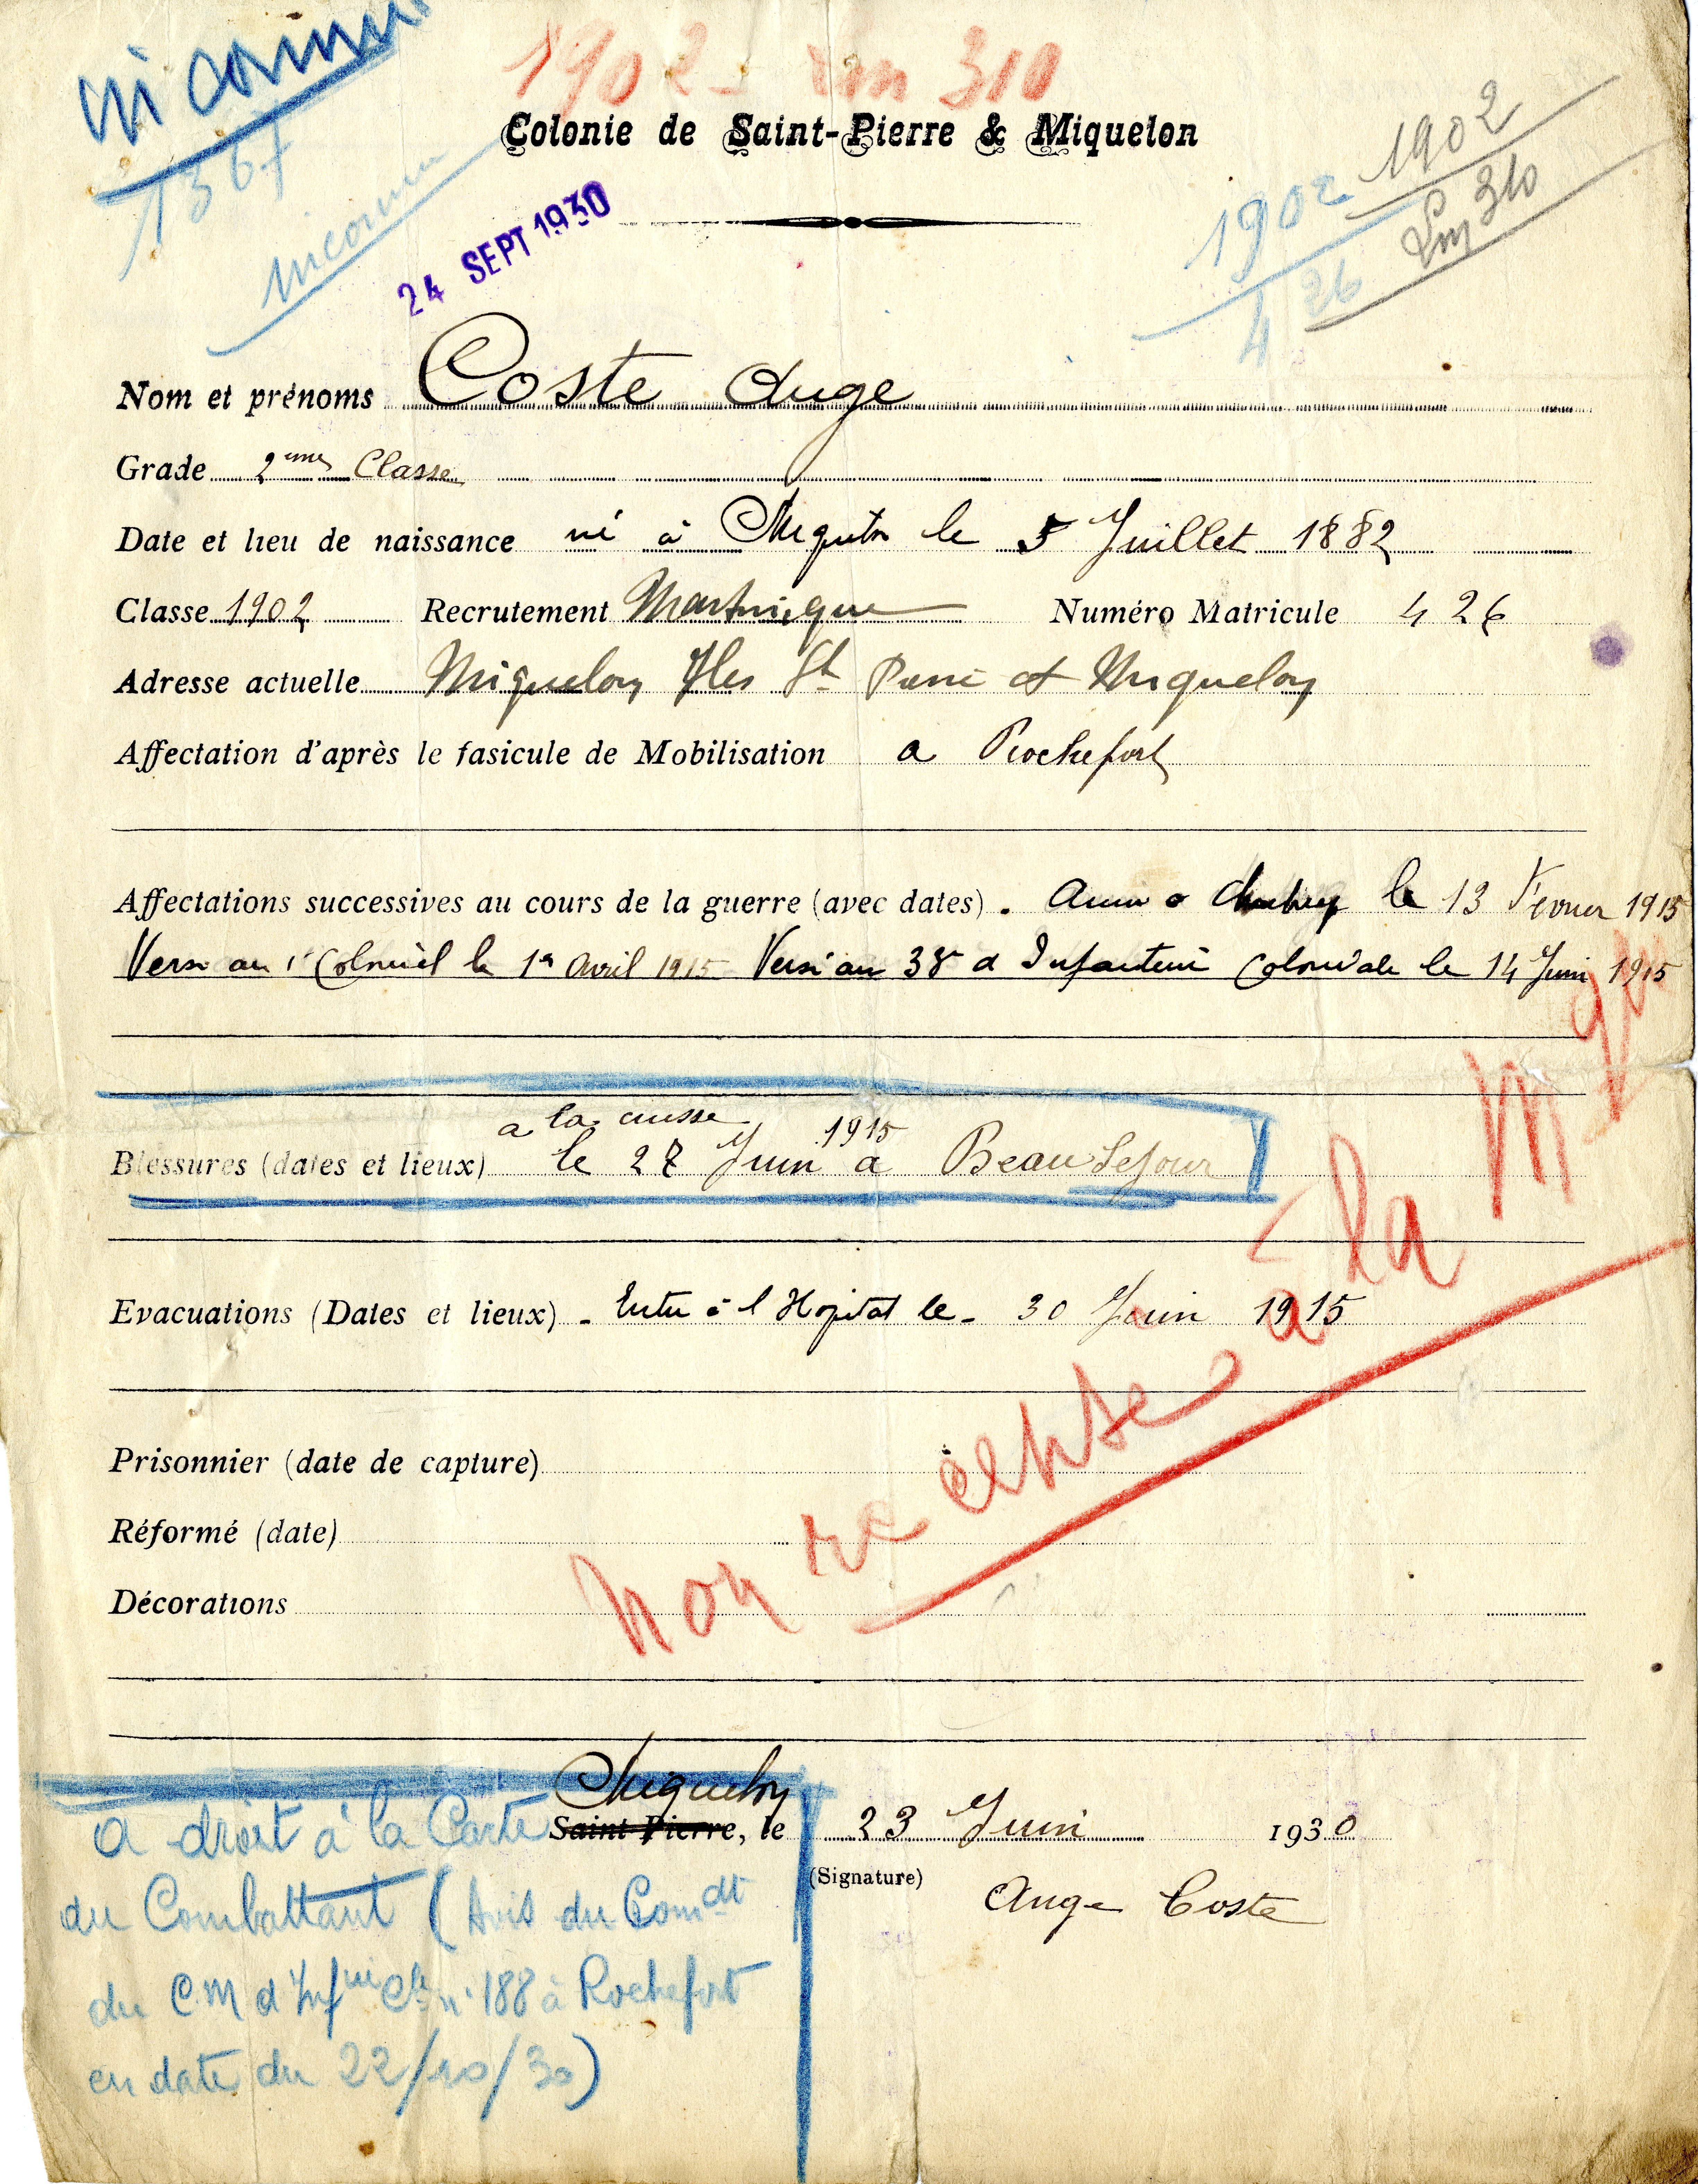 inconnu
1902 Lm 310
Colonie de Saint-Pierre & Miquelon
1367
inconnu
24 SEPT 1930
1902
1902
Lm 310
4 26
Nom et prénoms Coste Ange
Grade 2eme Classe
Date et lieu de naissance né à Miquelon le 5 Juillet 1882
Classe 1902 Recrutement Martinique Numéro Matricule 426
Adresse actuelle Miquelon Iles St Pierre et Miquelon
Affectation d'après le fasicule de Mobilisation a Rochefort
Affectations successives au cours de la guerre (avec dates). le 13 Février 1915
Versé au 1er Colonial le 1er Avril 1915 Versé au 38e d Infanterie Coloniale le 14 Juin 1915
a la cuisse
Blessures (dates et lieux) le 28 Juin 1915 a Beau Sejour
Evacuations (Dates et lieux) - Entré à l Hopital le - 30 Juin 1915
Prisonnier (date de capture)
Réformé (date)
Décorations
non recensé à la Mque
Miquelon
Saint-Pierre, le 23 Juin 1930
(Signature)
Ange Coste
a droit à la Carte
du Combattant (Avis du Comdt
du C.M d'Infrie Cle n° 188 à Rochefort
en date du 22/10/30)